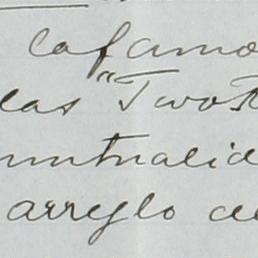 cafamo
las "Two R
untualid
arreglo de